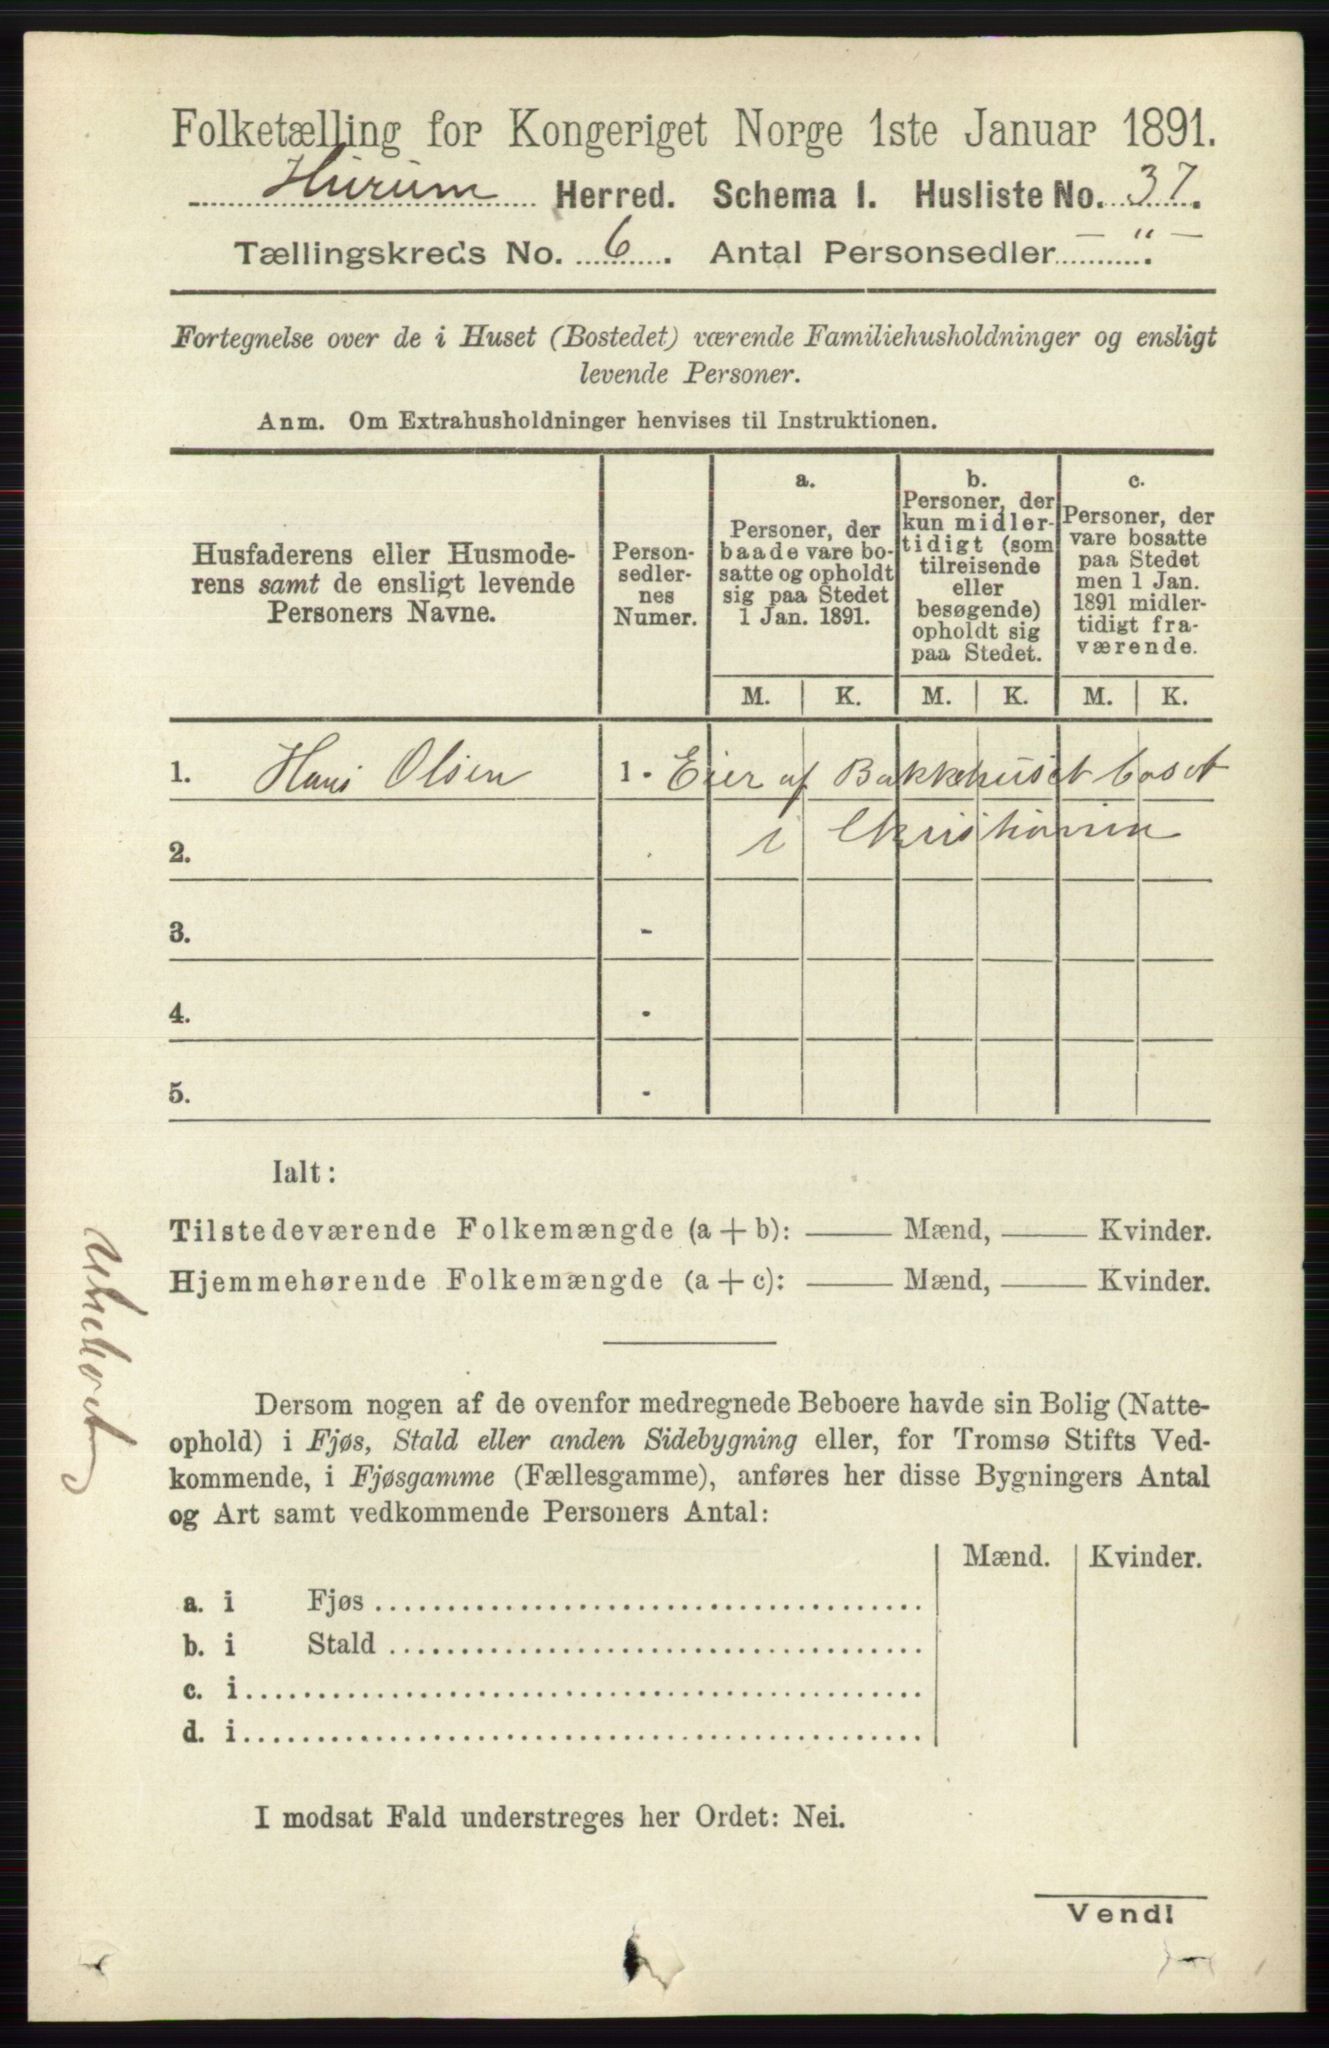 Folketælling for Kongeriget Norge 1ste Januar 1891.
Hurum Herred. Schema I. Husliste No. 37.
Tællingskreds No. 6. Antal Personsedler - " -
Fortegnelse over de i Huset (Bostedet) værende Familiehusholdninger og ensligt
levende Personer.
Anm. Om Extrahusholdninger henvises til Instruktionen.
Husfaderens eller Husmode-
rens samt de ensligt levende
Personers Navne.
Person-
sedler-
nes
Numer.
a.
Personer, der
baade vare bo-
satte og opholdt
sig paa Stedet
1 Jan. 1891.
b.
Personer, der
kun midler-
tidigt (som
tilreisende
eller
besøgende)
opholdt sig
paa Stedet.
c.
Personer, der
vare bosatte
paa Stedet
men 1 Jan.
1891 midler-
tidigt fra-
værende.
M. K. M. K. M. K.
1. Hans Olsen 1 - Eier af Bakkehuset boset
2. i Christiania
3. -
4. -
5. -
Ialt:
Tilstedeværende Folkemængde (a + b): Mænd, Kvinder.
Hjemmehørende Folkemængde (a + c): Mænd, Kvinder.
Ubeboet
Dersom nogen af de ovenfor medregnede Beboere havde sin Bolig (Natte-
ophold) i Fjøs, Stald eller anden Sidebygning eller, for Tromsø Stifts Ved-
kommende, i Fjøsgamme (Fællesgamme), anføres her disse Bygningers Antal
og Art samt vedkommende Personers Antal:
Mænd. Kvinder.
a. i Fjøs
b. i Stald
c. i
d. i
I modsat Fald understreges her Ordet: Nei.
Vend!